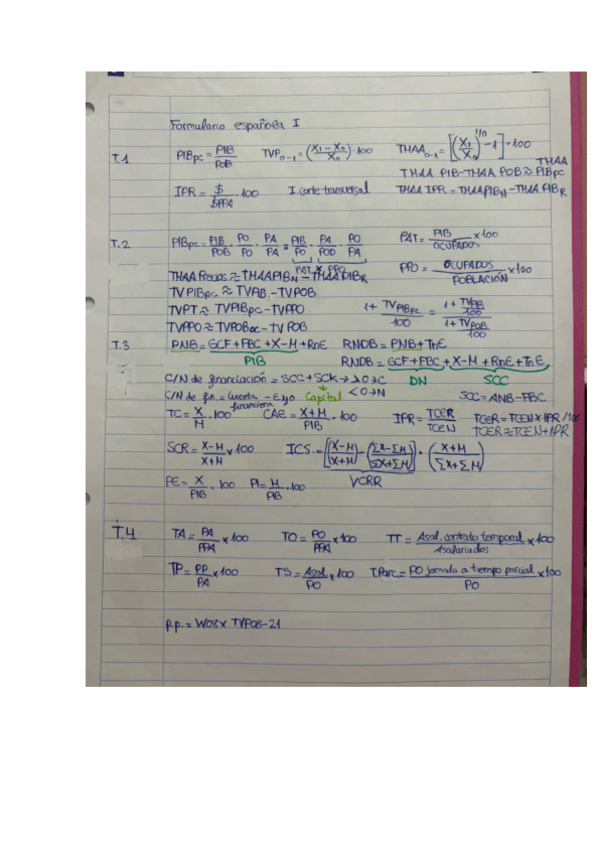 Formulario española I
T.1 PIBpc = PIB/POB TVP0-1 = (X1 - X0/X0)·100 THAA0-1 = [(X1/X0)^1/n - 1]·100
THAA PIB - THAA POB ≈ THAA PIBpc
IPR = $/$PPA · 100 I. corte transversal THAA IPR = THAA PIBN - THAA PIBR
T.2 PIBpc = PIB/POB · PO/PO · PA/PA = PIB/PO · PA/POD · PO/PA PAT = PIB/OCUPADOS x100
PAT x PPO
PPO = OCUPADOS/POBLACIÓN x100
THAA Precios ≈ THAA PIBN - THAA PIBR
TVPIBpc ≈ TVPIB - TVPOB
TVPT ≈ TVPIBpc - TVPPO 1 + TVPIBpc/100 = 1 + TVPIB/100 / 1 + TVPOB/100
TVPPO ≈ TVPOBoc - TVPOB
T.3 PNB = GCF + FBC + X - M + RnE RNDB = PNB + TnE
PIB RNDB = GCF + FBC + X - M + RnE + TnE
DN SCC
C/N de financiación = SCC + SCK → >0 → C
<0 → N
C/N de fin. = Cuenta financiera - E y O Capital SCC = ANB - FBC
TC = X/M · 100 CAE = X+M/PIB · 100 IPR = TCER/TCEN TCER = TCEN x IPR/100
TCER ≈ TCEN + IPR
SCR = X-M/X+M x100 ICS = [(X-M/X+M) - (ΣX-ΣM/ΣX+ΣM)] · (X+M/ΣX+ΣM)
VCRR
PE = X/PIB · 100 PI = M/PIB · 100
T.4 TA = PA/PPA x100 TO = PO/PPA x100 TT = Asal. contrato temporal/Asalariados x100
TP = PP/PA x100 TS = Asal/PO x100 T.Parc = PO jornada a tiempo parcial/PO x100
p.p. = W08 x TV08-21